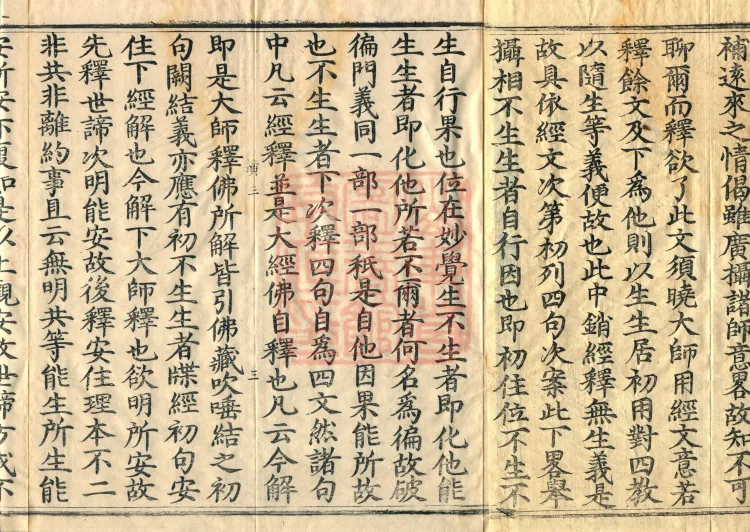 補遠來之情偈雖廣攝諸師意畧故知不可
聊爾而釋欲了此文須曉大師用經文意若
釋餘文及下爲他則以生生居初用對四教
以隨生等義便故也此中銷經釋無生義是
故具依經文次第初列四句次案此下畧舉
攝相不生生者自行因也即初住位不生不
生自行果也位在妙覺生不生者即化他能
生生者即化他所若不爾者何名爲徧故破
徧門義同一部一部秖是自他因果能所故
也不生生者下次釋四句自爲四文然諸句
中凡云經釋並是大經佛自釋也凡云今解
即是大師釋佛所解皆引佛藏吹唾結之初
句闕結義亦應有初不生生者牒經初句安
住下經解也今解下大師釋也欲明所安故
先釋世諦次明能安故後釋安住理本不二
非共非離約事且云無明共等能生所生能
安所安不復如是以止觀安故世諦方成不